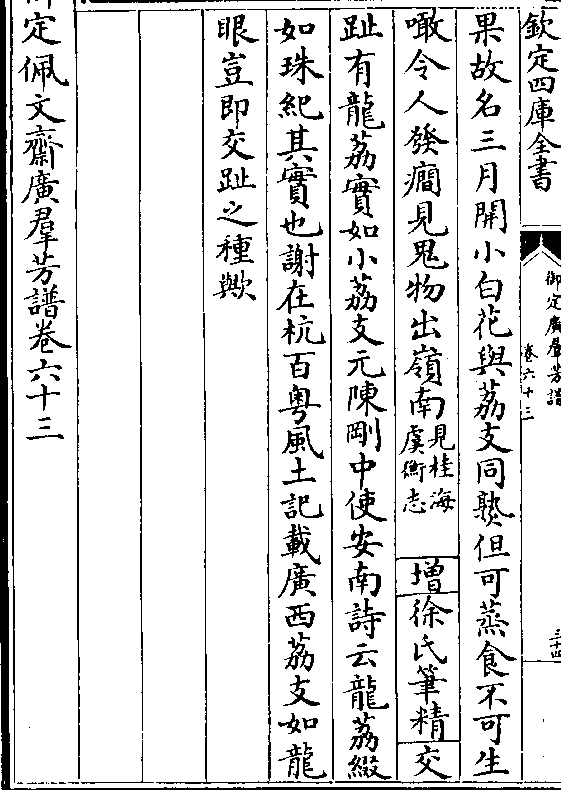 欽定四庫全書
御定廣羣芳譜
卷六十三
三十四
果故名三月開小白花與荔支同熟但可蒸食不可生
噉令人發癎見鬼物出嶺南見桂海虞衡志 增徐氏筆精交
趾有龍荔實如小荔支元陳剛中使安南詩云龍荔綴
如珠紀其實也謝在杭百粤風土記載廣西荔支如龍
眼豈即交趾之種歟
御定佩文齋廣羣芳譜卷六十三